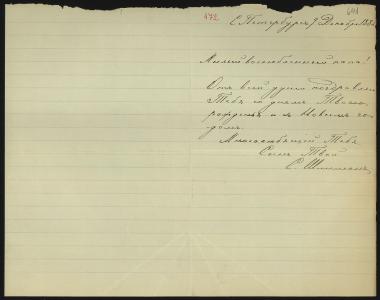 472.
641
С. Петербургъ 9 Декабря 188
Милый возлюбленный папа!
Отъ всей души поздравляю
Тебя съ днемъ Твоего
рожденья и съ Новымъ го-
домъ.
Многолюбящій Тебя
Сынъ Твой
С.